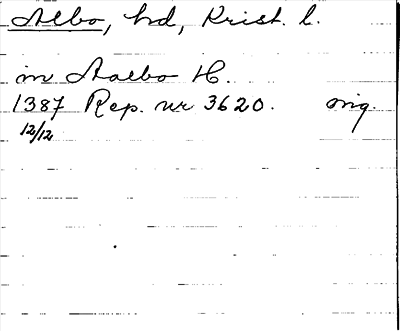 Aelbo, hd, Krist. l.
in Aalbo H.
1387 Rep. nr 3620. orig.
12/12